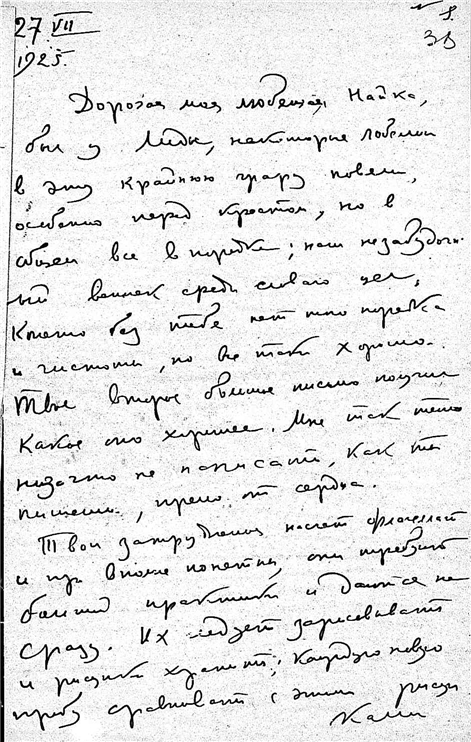 27 VII
1925.
8.
38
Дорогая моя любимая Найка,
был у Лидки, некоторые
в эту крайнюю жару
особенно перед крестом, но в
общем все в порядке; наш незабудоч-
ный веночек среди слева цел,
Конечно без тебя нет того порядка
и чистоты, но все таки хорошо.
Твое второе большое письмо получил
Какое оно хорошее. Мне так тепло
низачто не написать, как ты
пишешь, прямо от сердца.
Твои затруднения насчет флагеллат
и пр вполне понятны, они требуют
большой практики и даются не
сразу. Их следует зарисовывать
и рисунки хранить; Каждую новую
пробу сравнивать с этими рисун
ками